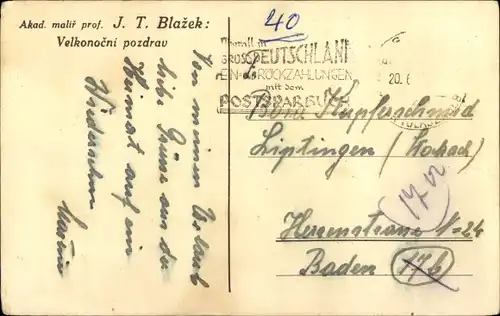 Akad. malíř prof. J. T. Blažek:
Velkonoční pozdrav
40
Überall in
GROSSDEUTSCHLAND
EIN- U. RÜCKZAHLUNGEN
mit dem
POSTSPARBUCH
20.6
Von meinem Urlaub
liebe Grüsse aus der
Heimat auf ein
Wiedersehen
Kupferschmid
Liptingen (Stockach)
17b
Herrenstrasse N=24
Baden (17b)